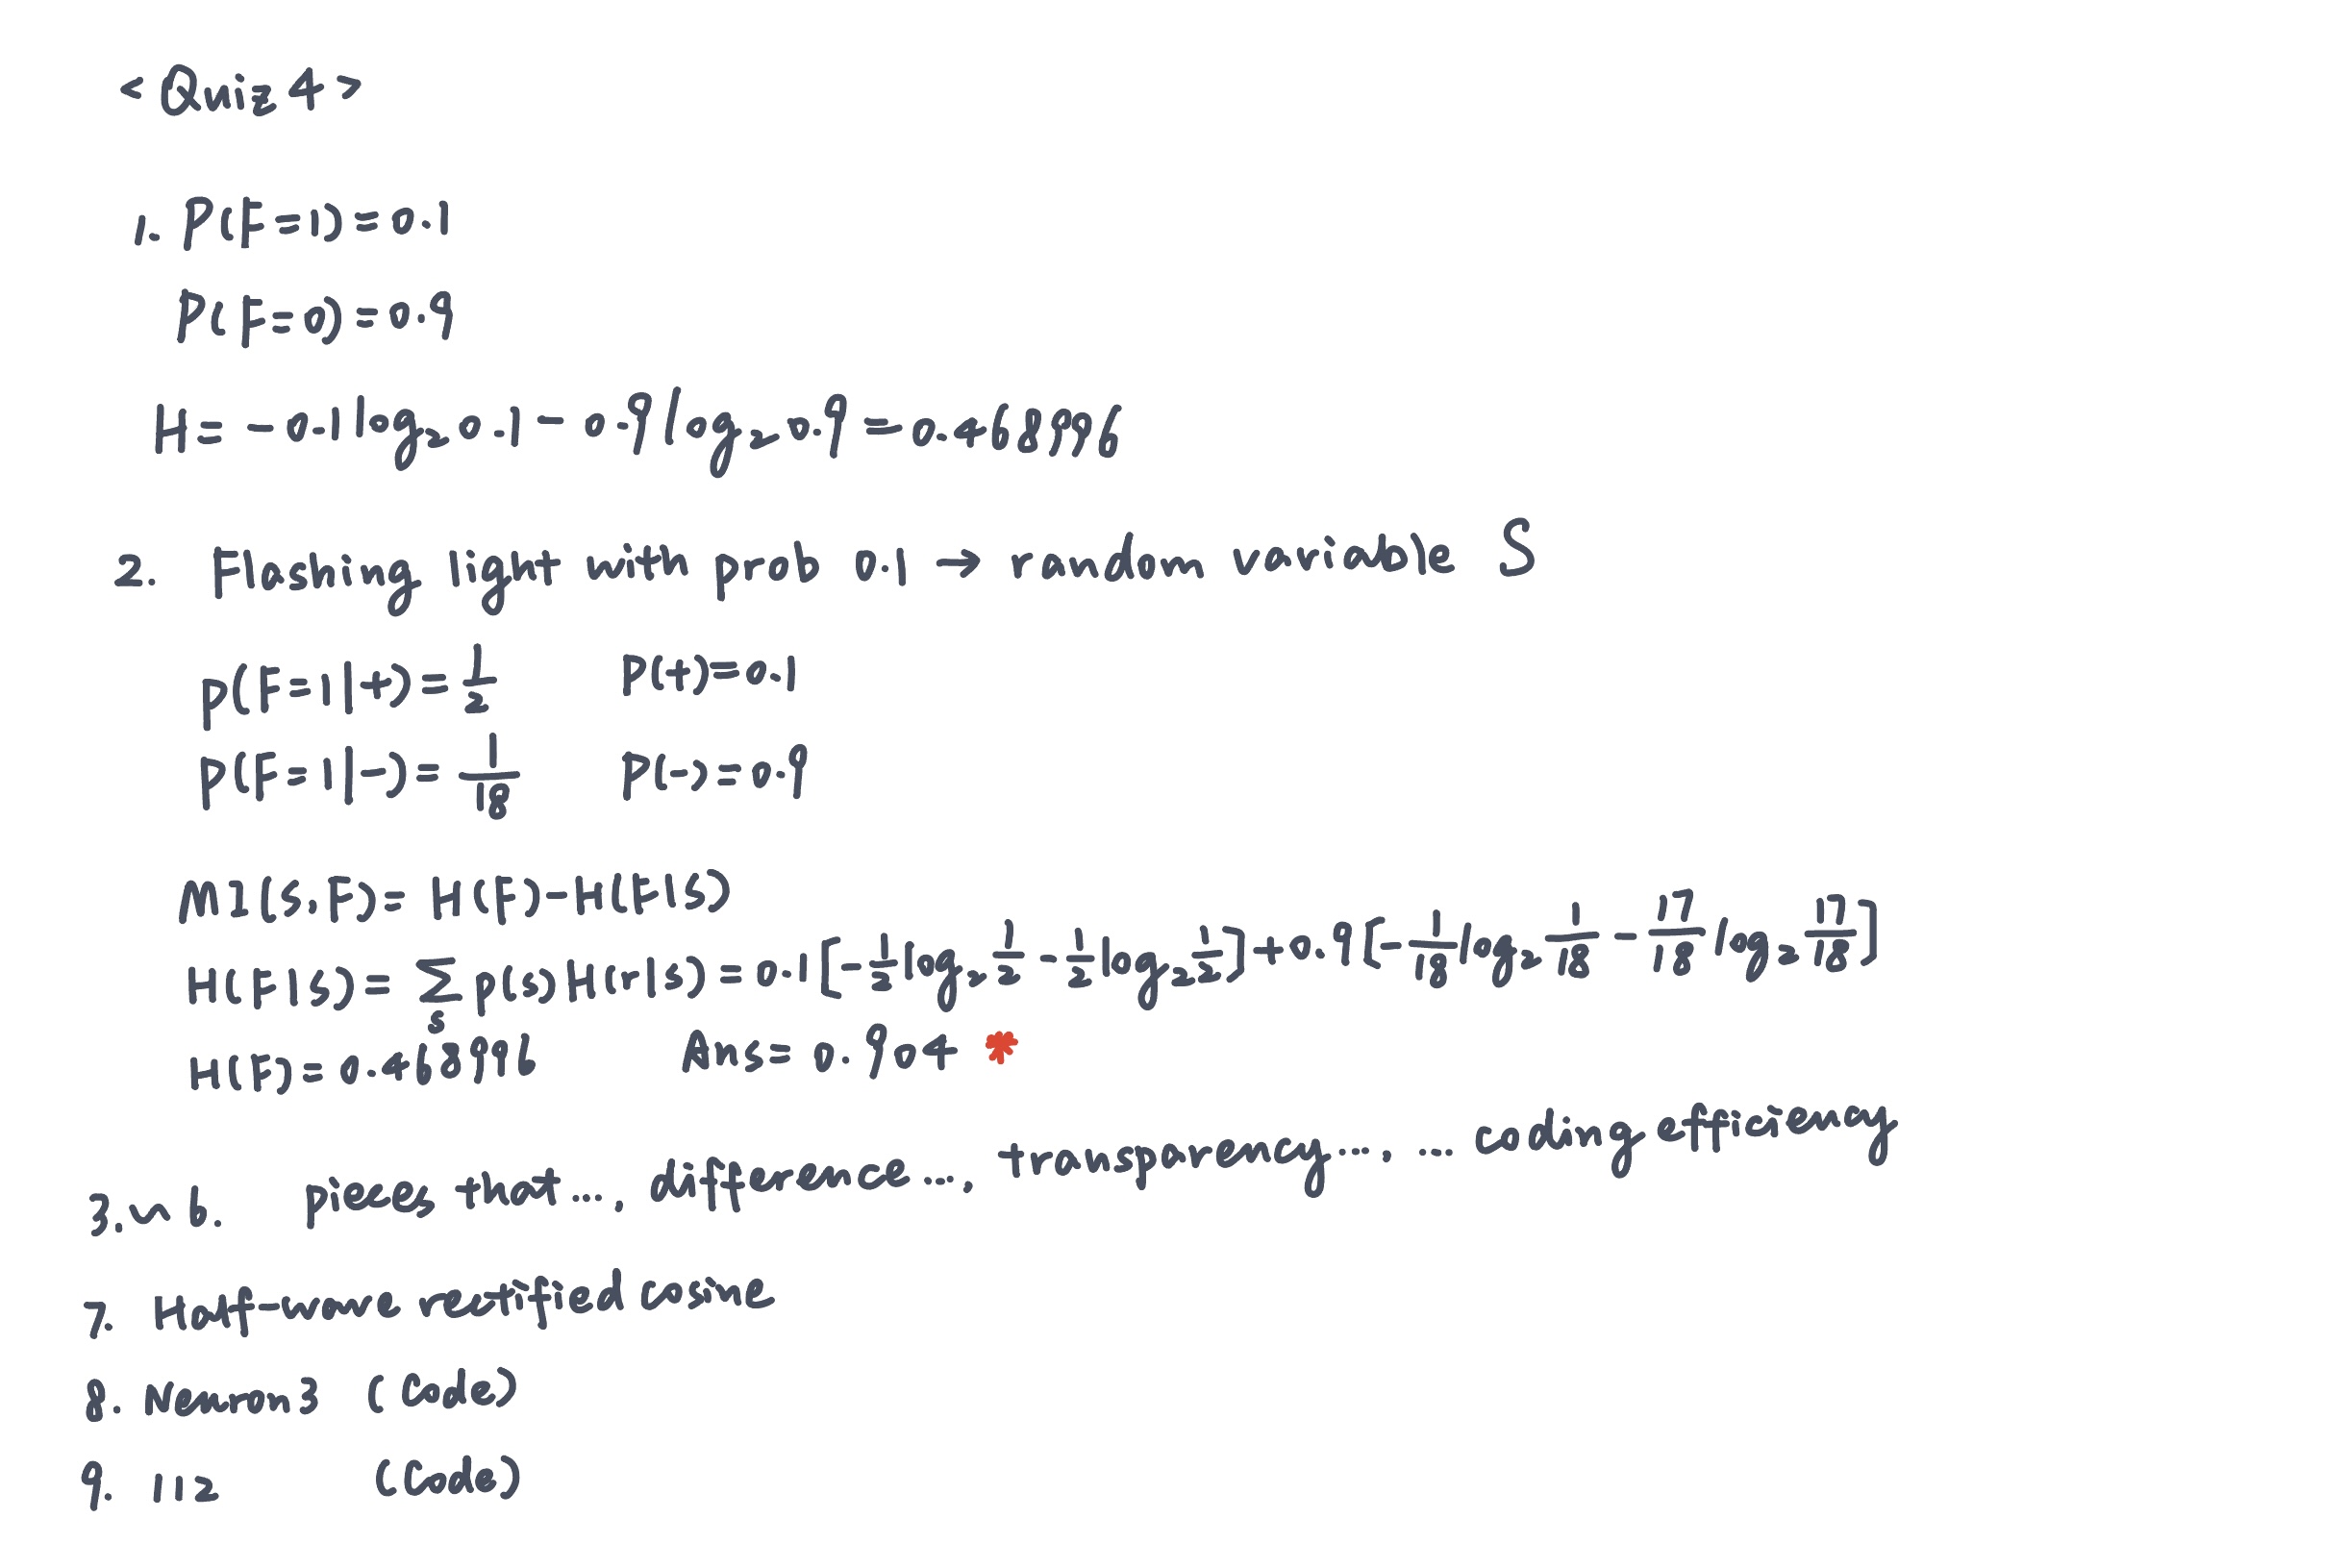 <Quiz 4>
1. P(F=1)=0.1
P(F=0)=0.9
H= -0.1 log₂ 0.1 - 0.9 log₂ 0.9 = 0.468996
2. Flashing light with prob 0.1 → random variable S
P(F=1|+)=1/2 P(+)=0.1
P(F=1|-)=1/18 P(-)=0.9
MI(S,F)= H(F)-H(F|S)
H(F|S)= Σ_s P(s) H(r|s) = 0.1[-1/2 log₂ 1/2 - 1/2 log₂ 1/2] + 0.9[-1/18 log₂ 1/18 - 17/18 log₂ 17/18]
H(F)=0.468996 Ans=0.904 *
3.~6. pieces that..., difference..., transparency..., ... coding efficiency
7. Half-wave rectified cosine
8. Neuron3 (Code)
9. 112 (Code)